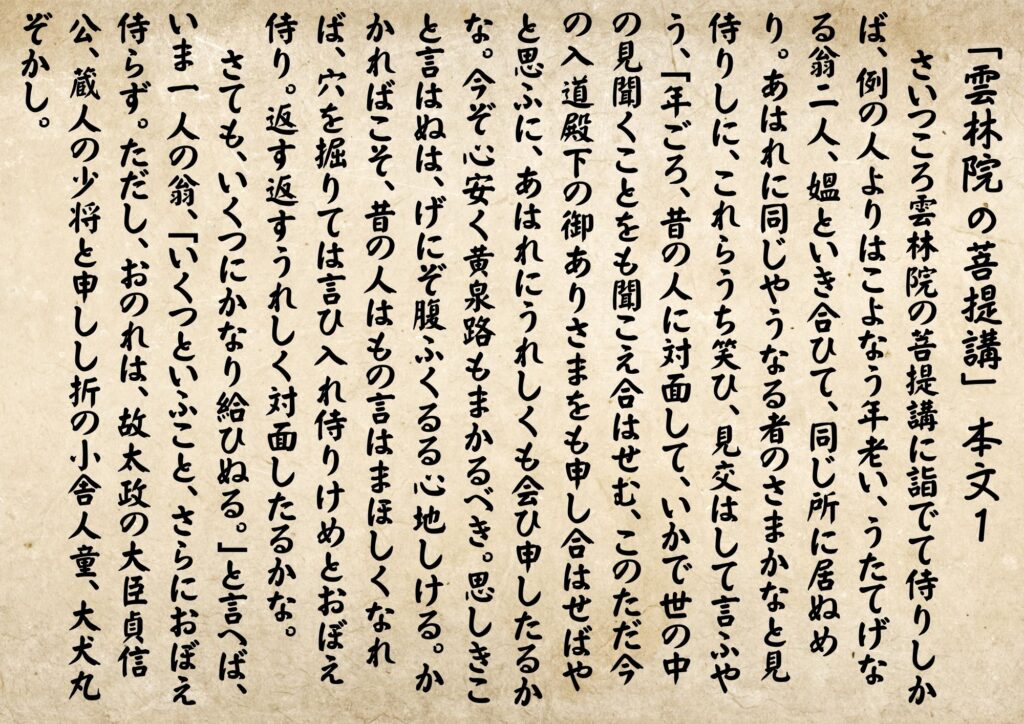 「雲林院の菩提講」 本文1
さいつころ雲林院の菩提講に詣でて侍りしか
ば、例の人よりはこよなう年老い、うたてげな
る翁二人、媼といき合ひて、同じ所に居ぬめ
り。あはれに同じやうなる者のさまかなと見
侍りしに、これらうち笑ひ、見交はして言ふや
う、「年ごろ、昔の人に対面して、いかで世の中
の見聞くことをも聞こえ合はせむ、このただ今
の入道殿下の御ありさまをも申し合はせばや
と思ふに、あはれにうれしくも会ひ申したるか
な。今ぞ心安く黄泉路もまかるべき。思しきこ
と言はぬは、げにぞ腹ふくるる心地しける。か
かればこそ、昔の人はもの言はまほしくなれ
ば、穴を掘りては言ひ入れ侍りけめとおぼえ
侍り。返す返すうれしく対面したるかな。
さても、いくつにかなり給ひぬる。」と言へば、
いま一人の翁、「いくつといふこと、さらにおぼえ
侍らず。ただし、おのれは、故太政の大臣貞信
公、蔵人の少将と申しし折の小舎人童、大犬丸
ぞかし。